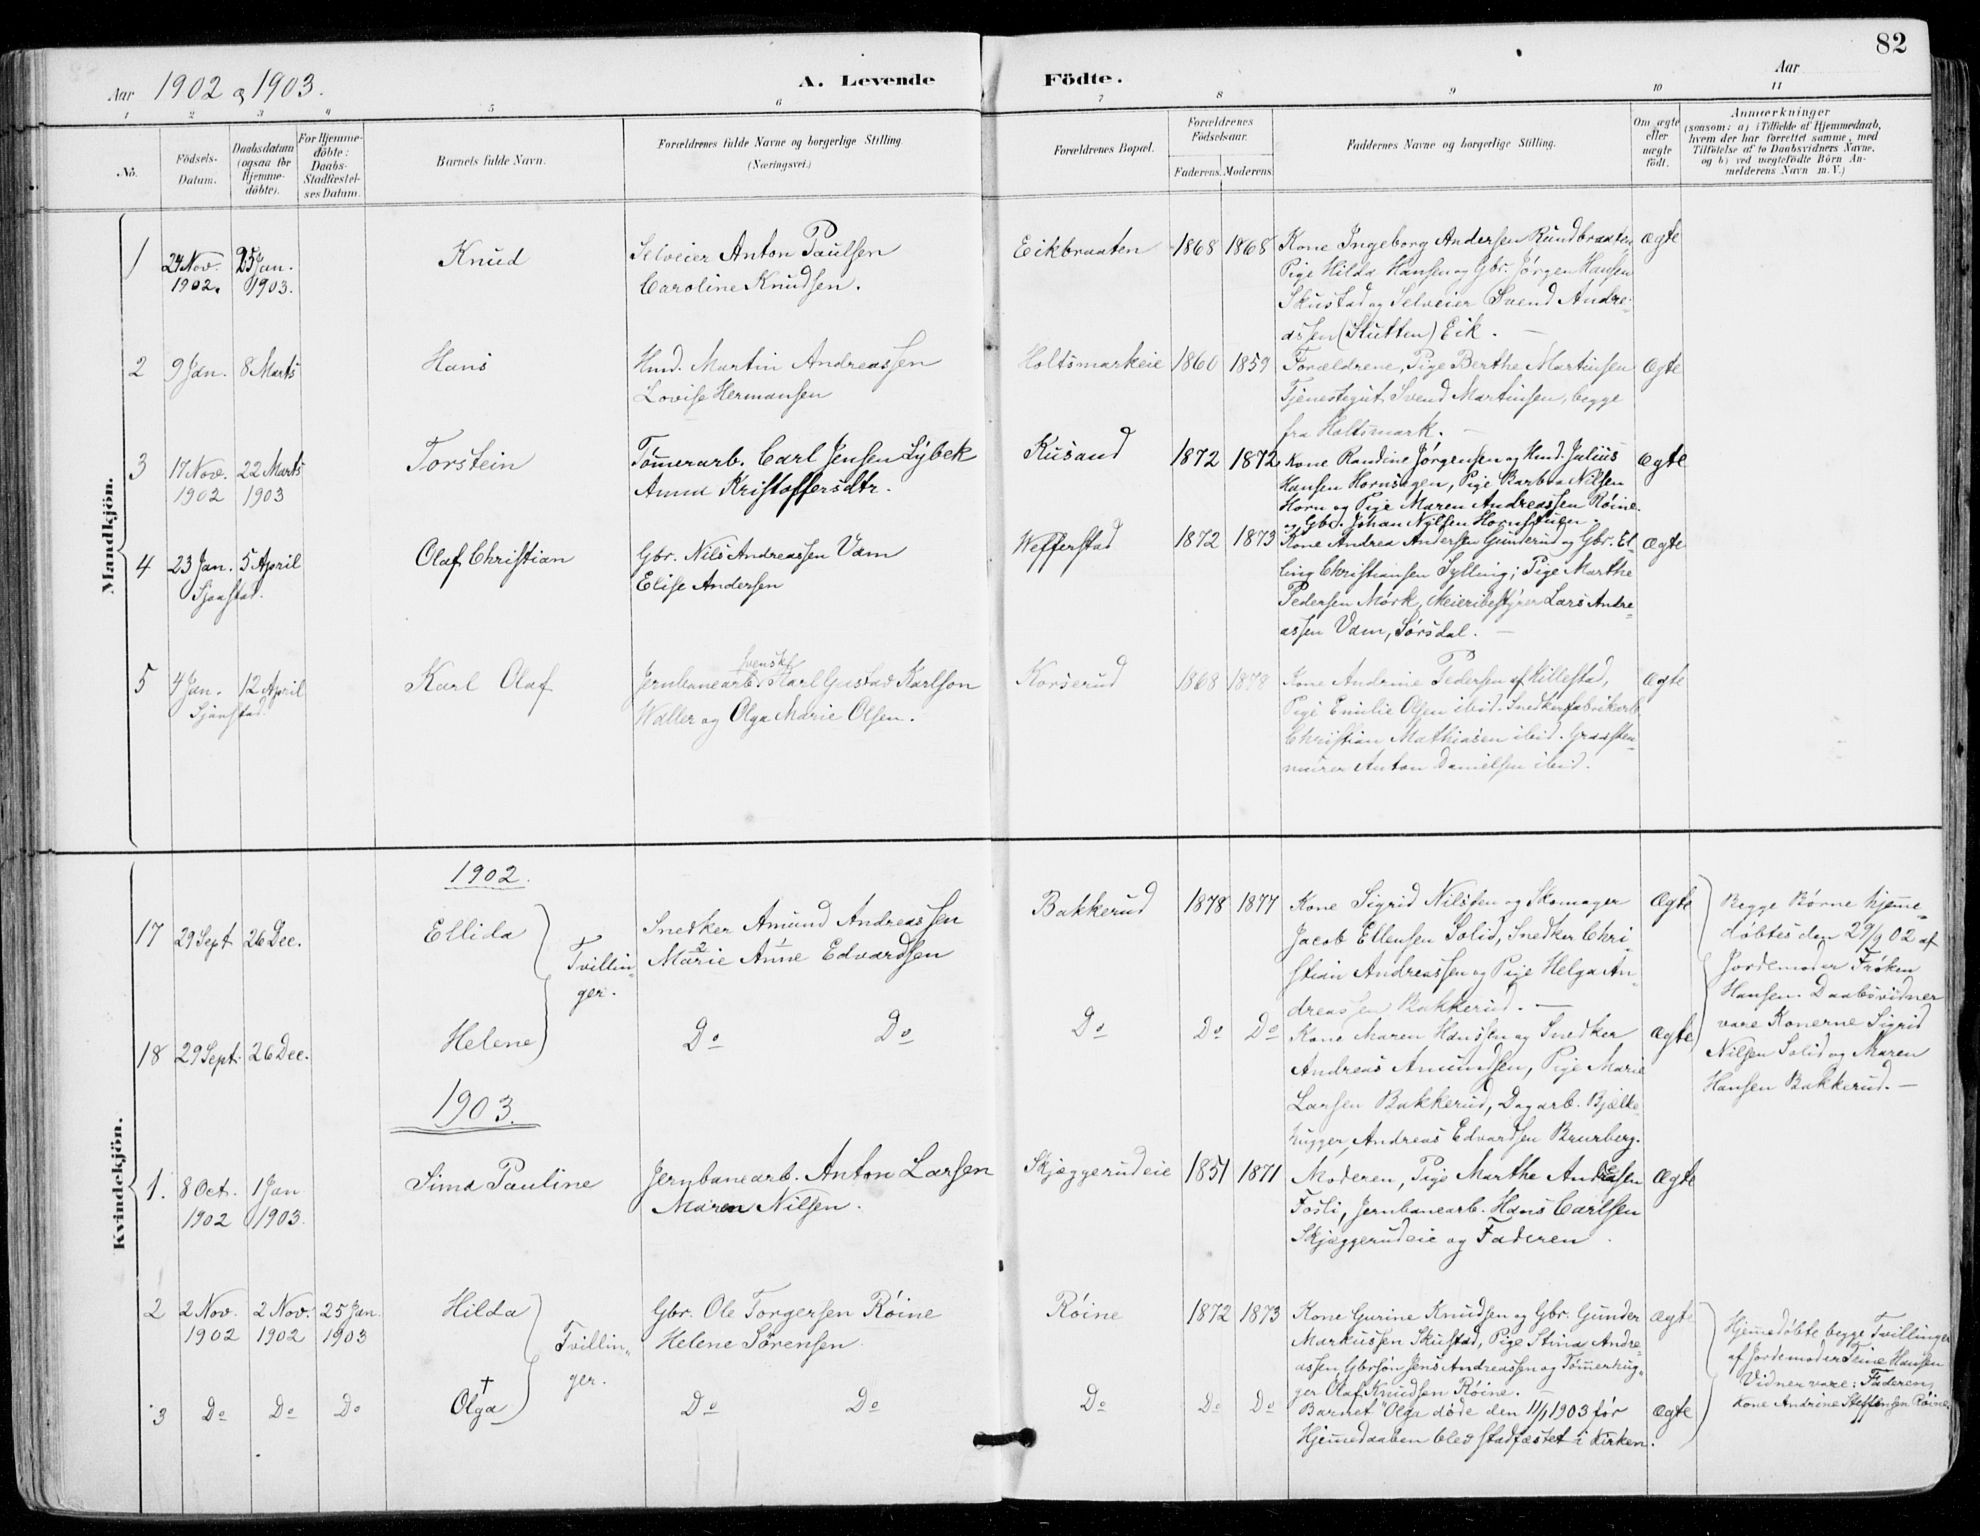 82
Aar 1902 og 1903.
A. Levende Födte.
Aar
1 2 3 4 5 6 7 8 9 10 11
No.
Födsels-Datum.
Daabsdatum (ogsaa for Hjemme-döbte).
For Hjemme-döbte: Daabs-Stadfæstel-ses Datum.
Barnets fulde Navn.
Forældrenes fulde Navne og borgerlige Stilling (Næringsvei.)
Forældrenes Bopæl.
Forældrenes Födselsaar.
Faderens. Moderens.
Faddernes Navne og borgerlige Stilling.
Om ægte eller uægte födt.
Anmærkninger
(saasom: a) i Tilfælde af Hjemmedaab,
hvem der har forrettet samme, med
Tilföielse af to Daabsvidners Navne,
og b) ved uægtefödte Börn An-
melderens Navn m. V.)
Mandkjön.
1 24 Nov. 1902. 25 Jan. 1903. Knud
Selveier Anton Paulsen
Caroline Knudsen.
Eikbraaten 1868 1868
Kone Ingeborg Andersen Rundbraaten
Pige Hilda Hansen og Gbr. Jørgen Hansen
Skustad og Selveier Svend Andre-
assen (Stutten) Eik. —
ægte
2 9 Jan. 8 Marts Hans
Hmd. Martin Andreassen
Lovise Hermansen
Holtsmarkeie 1860 1859
Forældrene, Pige Berthe Martinsen
Tjenestegut Svend Martinsen, begge
fra Holtsmark. —
ægte
3 17 Nov. 1902 22 Marts 1903 Torstein
Tömerarb. Carl Jensen Lybek
Anna Kristoffersdtr.
Kusand 1872 1872
Kone Randine Jörgensen og Hmd. Julius
Hansen Hornsagen, Pige Barbra Nilsen
Horn og Pige Maren Andreassen Röine.
og Gbr. Johan Nilsen Hornstuen
ægte
4 23 Jan. 5 April Sjaastad. Olaf Christian
Gbr. Nils Andreassen Vam
Elise Andersen
Wefferstad 1872 1873
Kone Andrea Andersen Gunderud og Gbr. El-
ling Christiansen Sylling; Pige Marthe
Pedersen Mörk, Meieribestyrer Lars Andre-
assen Vam, Sörsdal. —
ægte
5 4 Jan. 12 April Sjaastad. Karl Olaf
svensk
Jernbanearb. Karl Gustav Karlson
Waller og Olga Marie Olsen.
Korserud 1868 1878
Kone Andrine Pedersen af Hillestad,
Pige Emilie Olsen ibid. Snedkerfabrikarb.
Christian Mathiasen ibid. Graasten-
murer Anton Danielsen ibid.
ægte
Kvindekjön.
1902.
17 29 Sept 26 Dec. Ellida
Tvillin-
ger.
Snedker Amund Andreassen
2 1
Marie Anne Edvardsen
Bakkerud 1878 1877
Kone Sigrid Nilsen og Skomager
Jacob Ellensen Solid, Snedker Chri-
stian Andreassen og Pige Helga An-
dreassen Bakkerud. —
ægte
Begge Børne hjemme-
døbtes den 29/9 02 af
Jordemoder Frøken
Hansen. Daabsvidner
vare Konerne Sigrid
Nilsen Solid og Maren
Hansen Bakkerud. —
18 29 Sept. 26 Dec. Helene
Do Do Do Do Do
Kone Maren Hansen og Snedker
Andreas Amundsen, Pige Marie
Larsen Bakkerud, Dagarb. Bjælke
hugger, Andreas Edvardsen Brurberg.
ægte
1903.
1. 8 Oct. 1902 1 Jan 1903. Sima Pauline
Jernbanearb. Anton Larsen
Maren Nilsen.
Skjæggerudeie 1851 1871
Moderen, Pige Marthe Andersen
Fosli, Jernbanearb. Hans Carlsen
Skjæggerudeie og Faderen.
ægte
2 2 Nov. 1902 2 Nov. 1902 25 Jan. 1903 Hilda
Tvillin-
ger.
Gbr. Ole Torgersen Röine
Helene Sörensen.
Röine 1872 1873
Kone Gurine Knudsen og Gbr. Gunder
Markussen Skustad, Pige Stina Andre-
assen, Gbrsön Jens Andreassen og Tömmerhug-
ger Olaf Knudsen Röine.
ægte
Hjemmedøbte begge Tvillinger
af Jordemoder Trine Hansen
Vidner vare: Faderen,
Kone Andrine Steffensen Röine.
3 Do Do Do † Olga
Do Do Do Do Do
Barnet "Olga døde den 11/1 1903 før
Hjemmedaaben blev stadfæstet i Kirken.
ægte